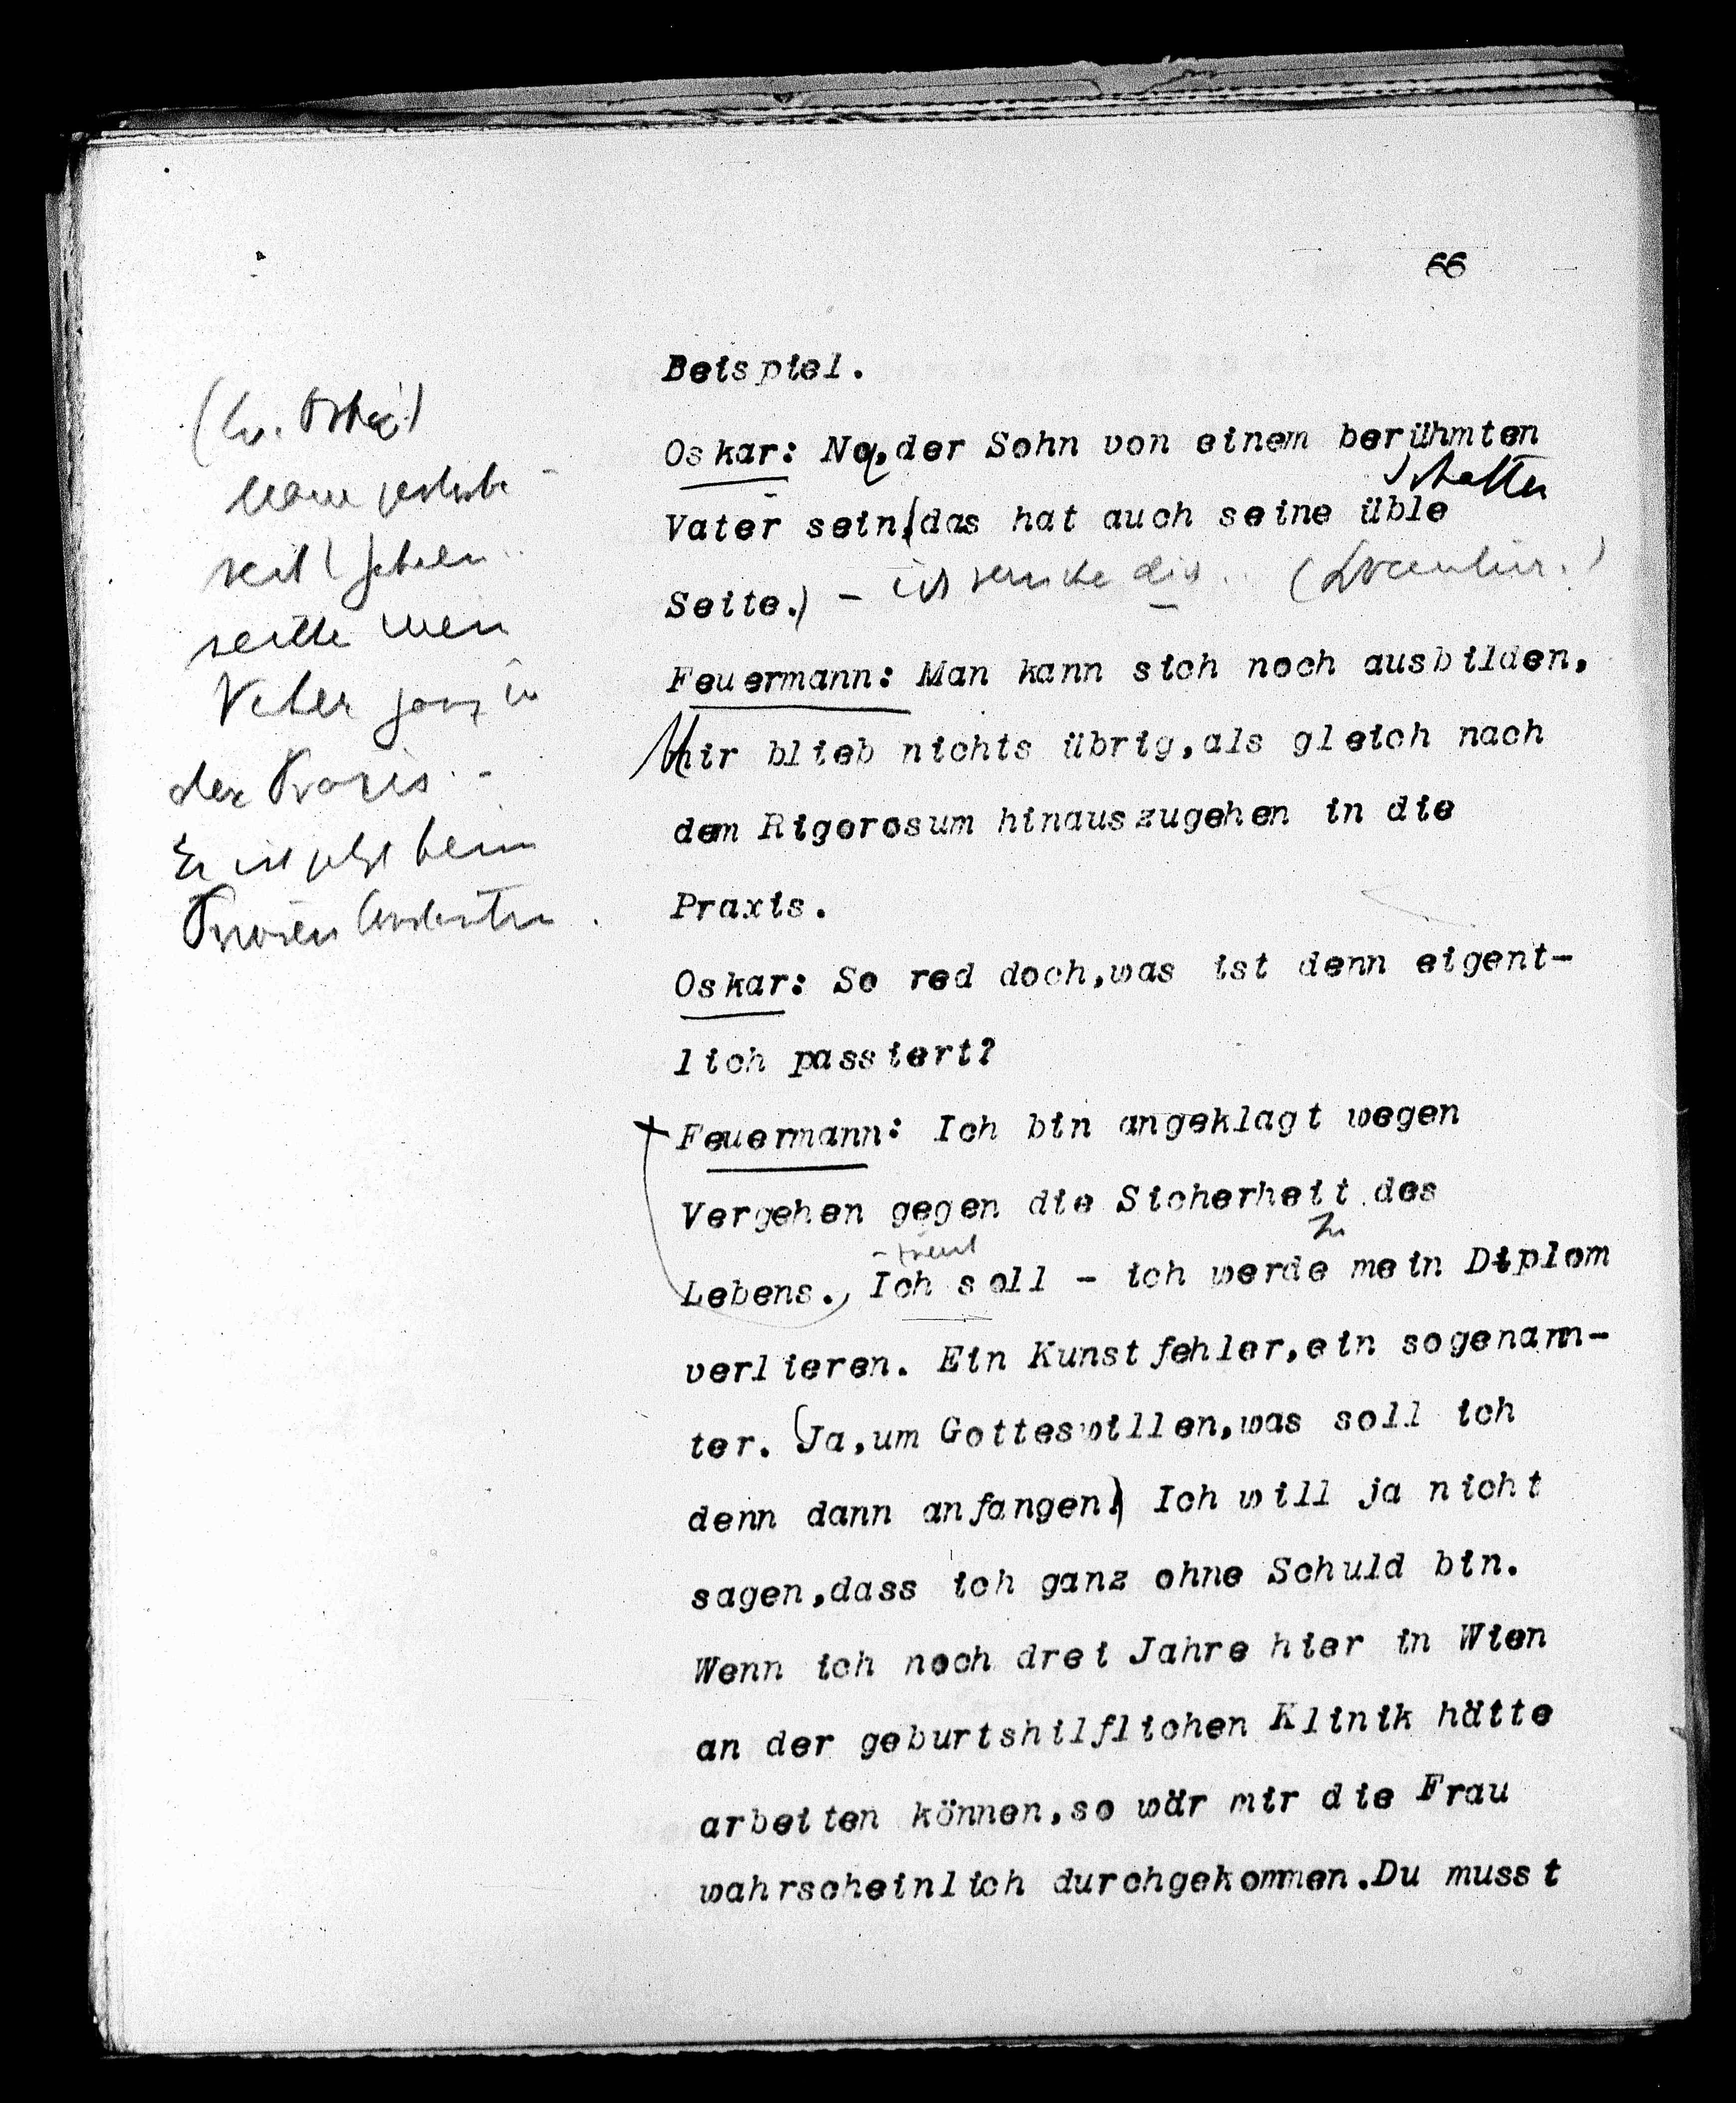 66
Beispiel.
Oskar: Na, der Sohn von einem berühmten
Schatten
Vater sein, das hat auch seine üble
Seite.) - ich
Feuermann: Man kann sich noch ausbilden.
Mir blieb nichts übrig, als gleich nach
dem Rigorosum hinauszugehen in die
Praxis.
Oskar: So red doch, was ist denn eigent-
lich passiert?
Feuermann: Ich bin angeklagt wegen
Vergehen gegen die Sicherheit des
Lebens. Ich soll - ich werde mein Diplom
verlieren. Ein Kunstfehler, ein sogenann-
ter. (Ja, um Gotteswillen, was soll ich
denn dann anfangen!) Ich will ja nicht
sagen, dass ich ganz ohne Schuld bin.
Wenn ich noch drei Jahre hier in Wien
an der geburtshilflichen Klinik hätte
arbeiten können, so wär mir die Frau
wahrscheinlich durchgekommen. Du musst
Vater ganz in
der Praxis..-
Er ist jetzt beim